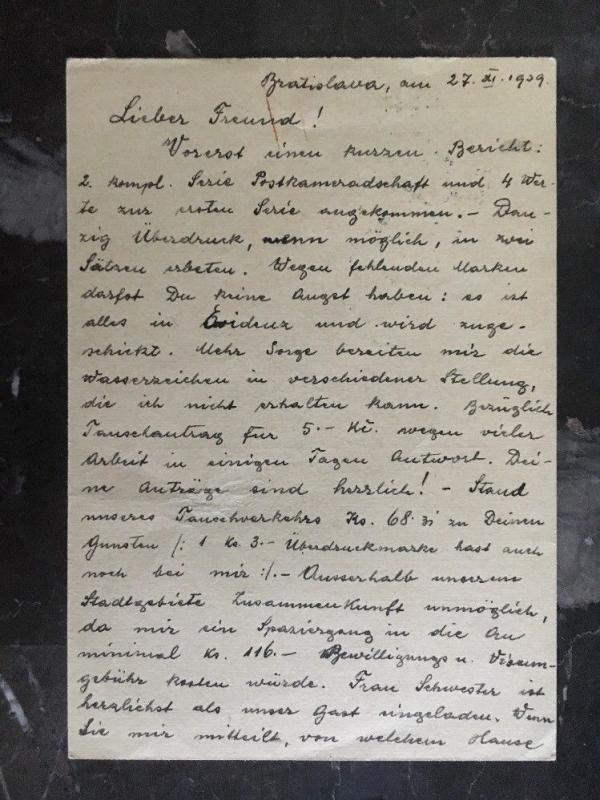 Bratislava, am 27. XI. 1939.
Lieber Freund!
Vorerst einen kurzen Bericht:
2. kompl. Serie Postkameradschaft und 4 Wer-
te zur ersten Serie angekommen. - Dan-
zig Überdruck, wenn möglich, in zwei
Sätzen erbeten. Wegen fehlenden Marken
darfst Du keine Angst haben: es ist
alles in Evidenz und wird zuge-
schickt. Mehr Sorge bereiten mir die
Wasserzeichen in verschiedener Stellung,
die ich nicht erhalten kann. Bezüglich
Tauschantrag für 5.- Kč. wegen vieler
Arbeit in einigen Tagen Antwort. Dei-
ne Anträge sind herzlich! - Stand
unseres Tauschverkehrs Ks. 68. zu Deinen
Gunsten /: 1 Ks 3.- Überdruckmarke hast auch
noch bei mir :/. - Ausserhalb unserem
Stadtgebiete Zusammenkunft unmöglich,
da mir ein Spaziergang in die Au
minimal Ks. 116.- Bewilligungs u. Visum-
gebühr kosten würde. Frau Schwester ist
herzlichst als unser Gast eingeladen. Wenn
Sie mir mitteilt, von welchem Hause